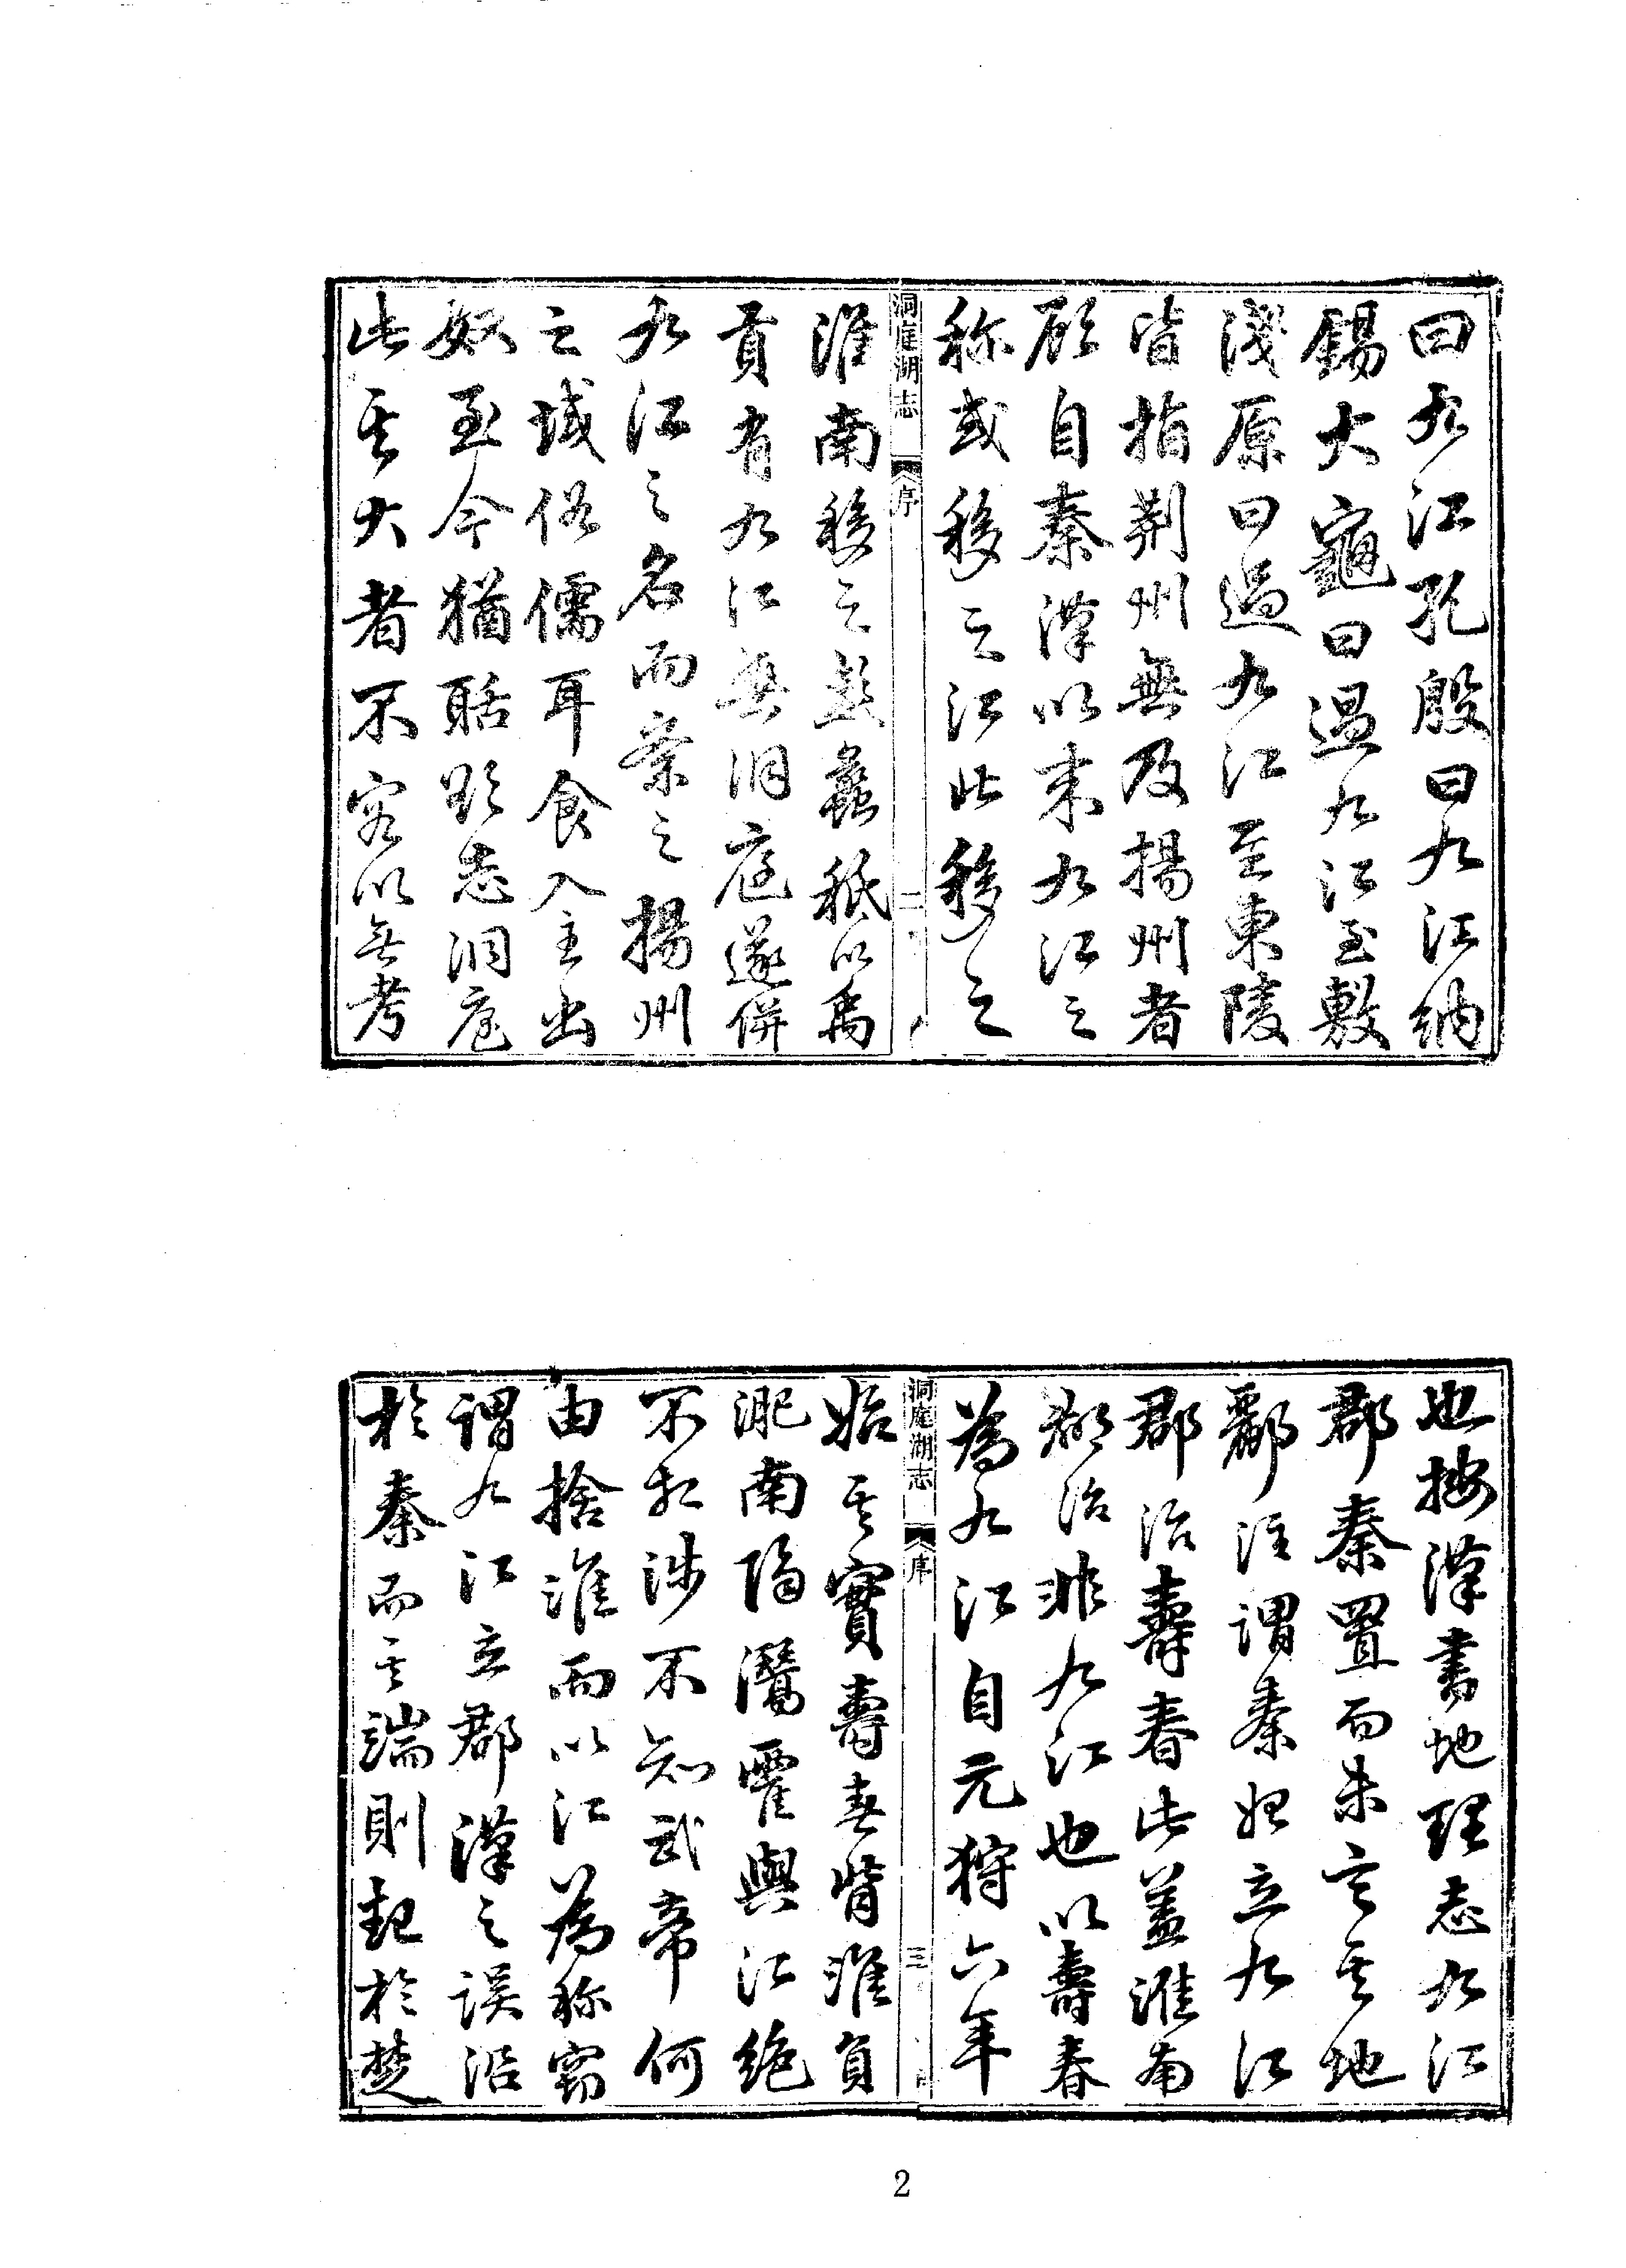 曰九江孔殷曰九江納
錫大龜曰過九江至敷
淺原曰過九江至東陵
皆指荆州無及揚州者
顧自秦漢以来九江之
称或移之江北移之
洞庭湖志 序 二
淮南移之彭蠡秖以禹
貢有九江無洞庭遂併
九江之名而索之揚州
之域俗儒耳食入主出
奴至今猶聒聒志洞庭
此其大者不容以無考
也按漢書地理志九江
郡秦置而未言其地
酈注謂秦始立九江
郡治壽春此蓋淮南
郡治非九江也以壽春
為九江自元狩六年
洞庭湖志 序 三
始其實壽春背淮負
淝南隔灊霍與江絶
不相涉不知武帝何
由捨淮而以江為称窃
謂九江立郡漢之誤沿
於秦而其端則起於楚
2